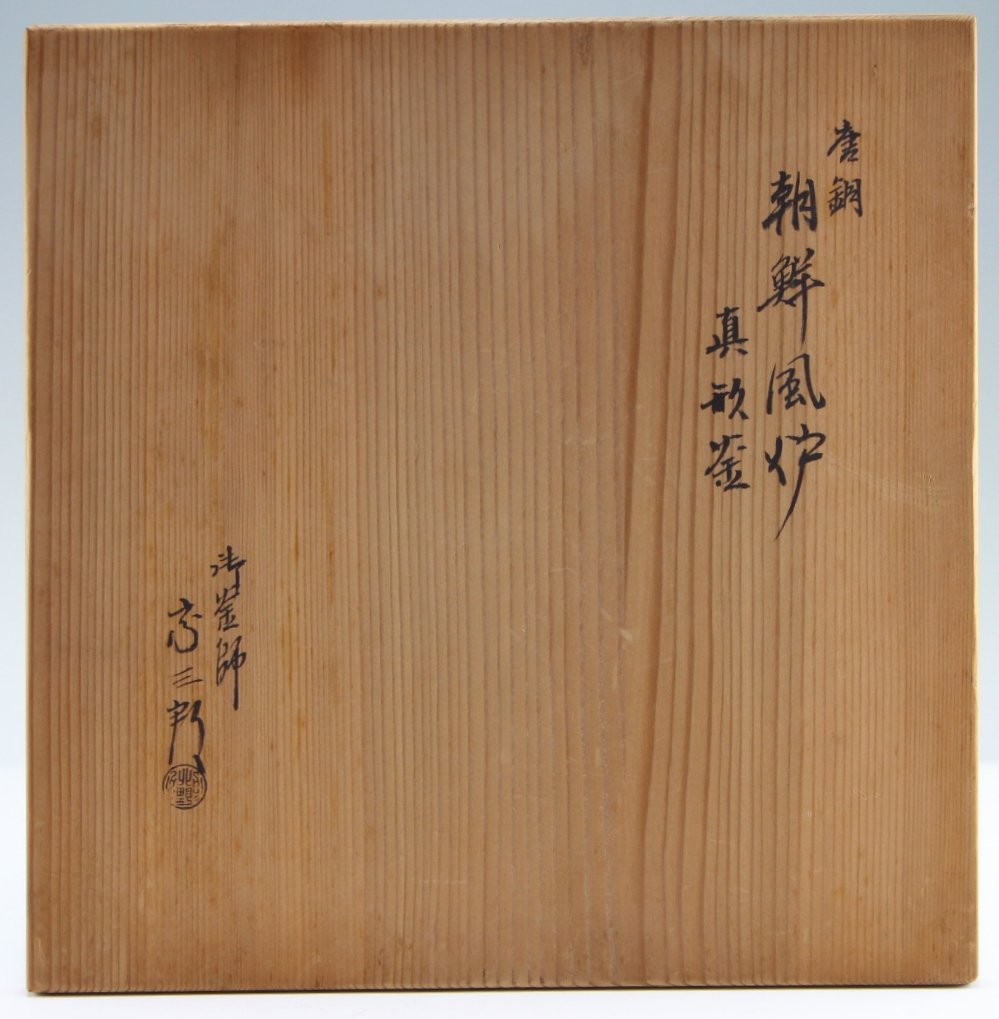 唐銅
朝鮮風炉
真形釜
御釜師
彦三郎